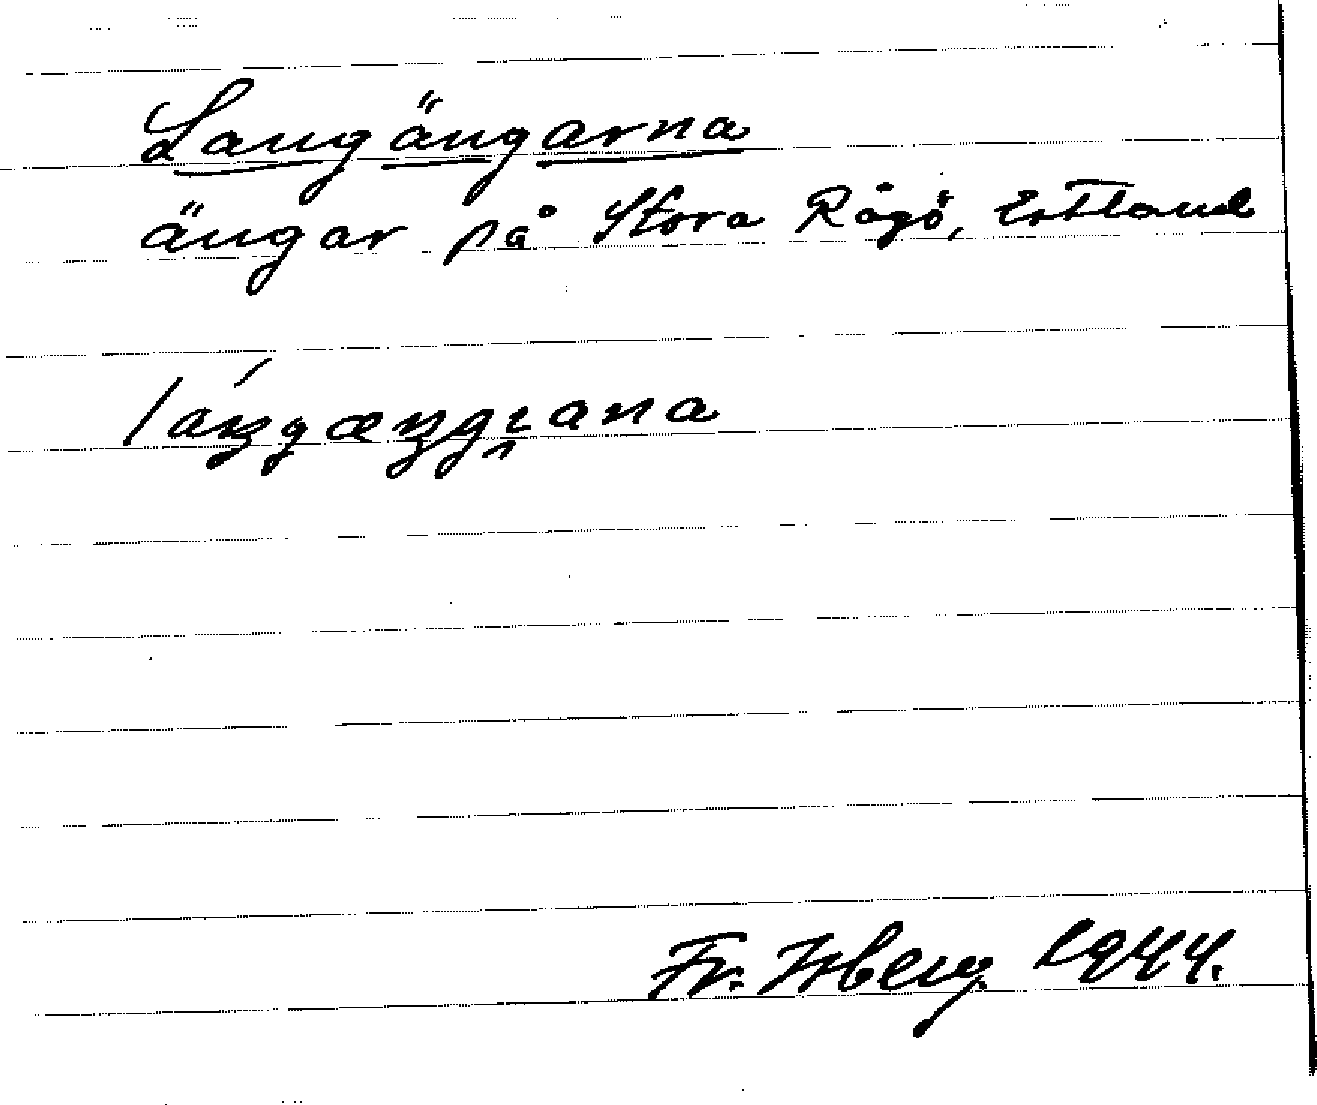 Langängarna
ängar på Stora Rågö, Estland
Fr. Isberg 1944.